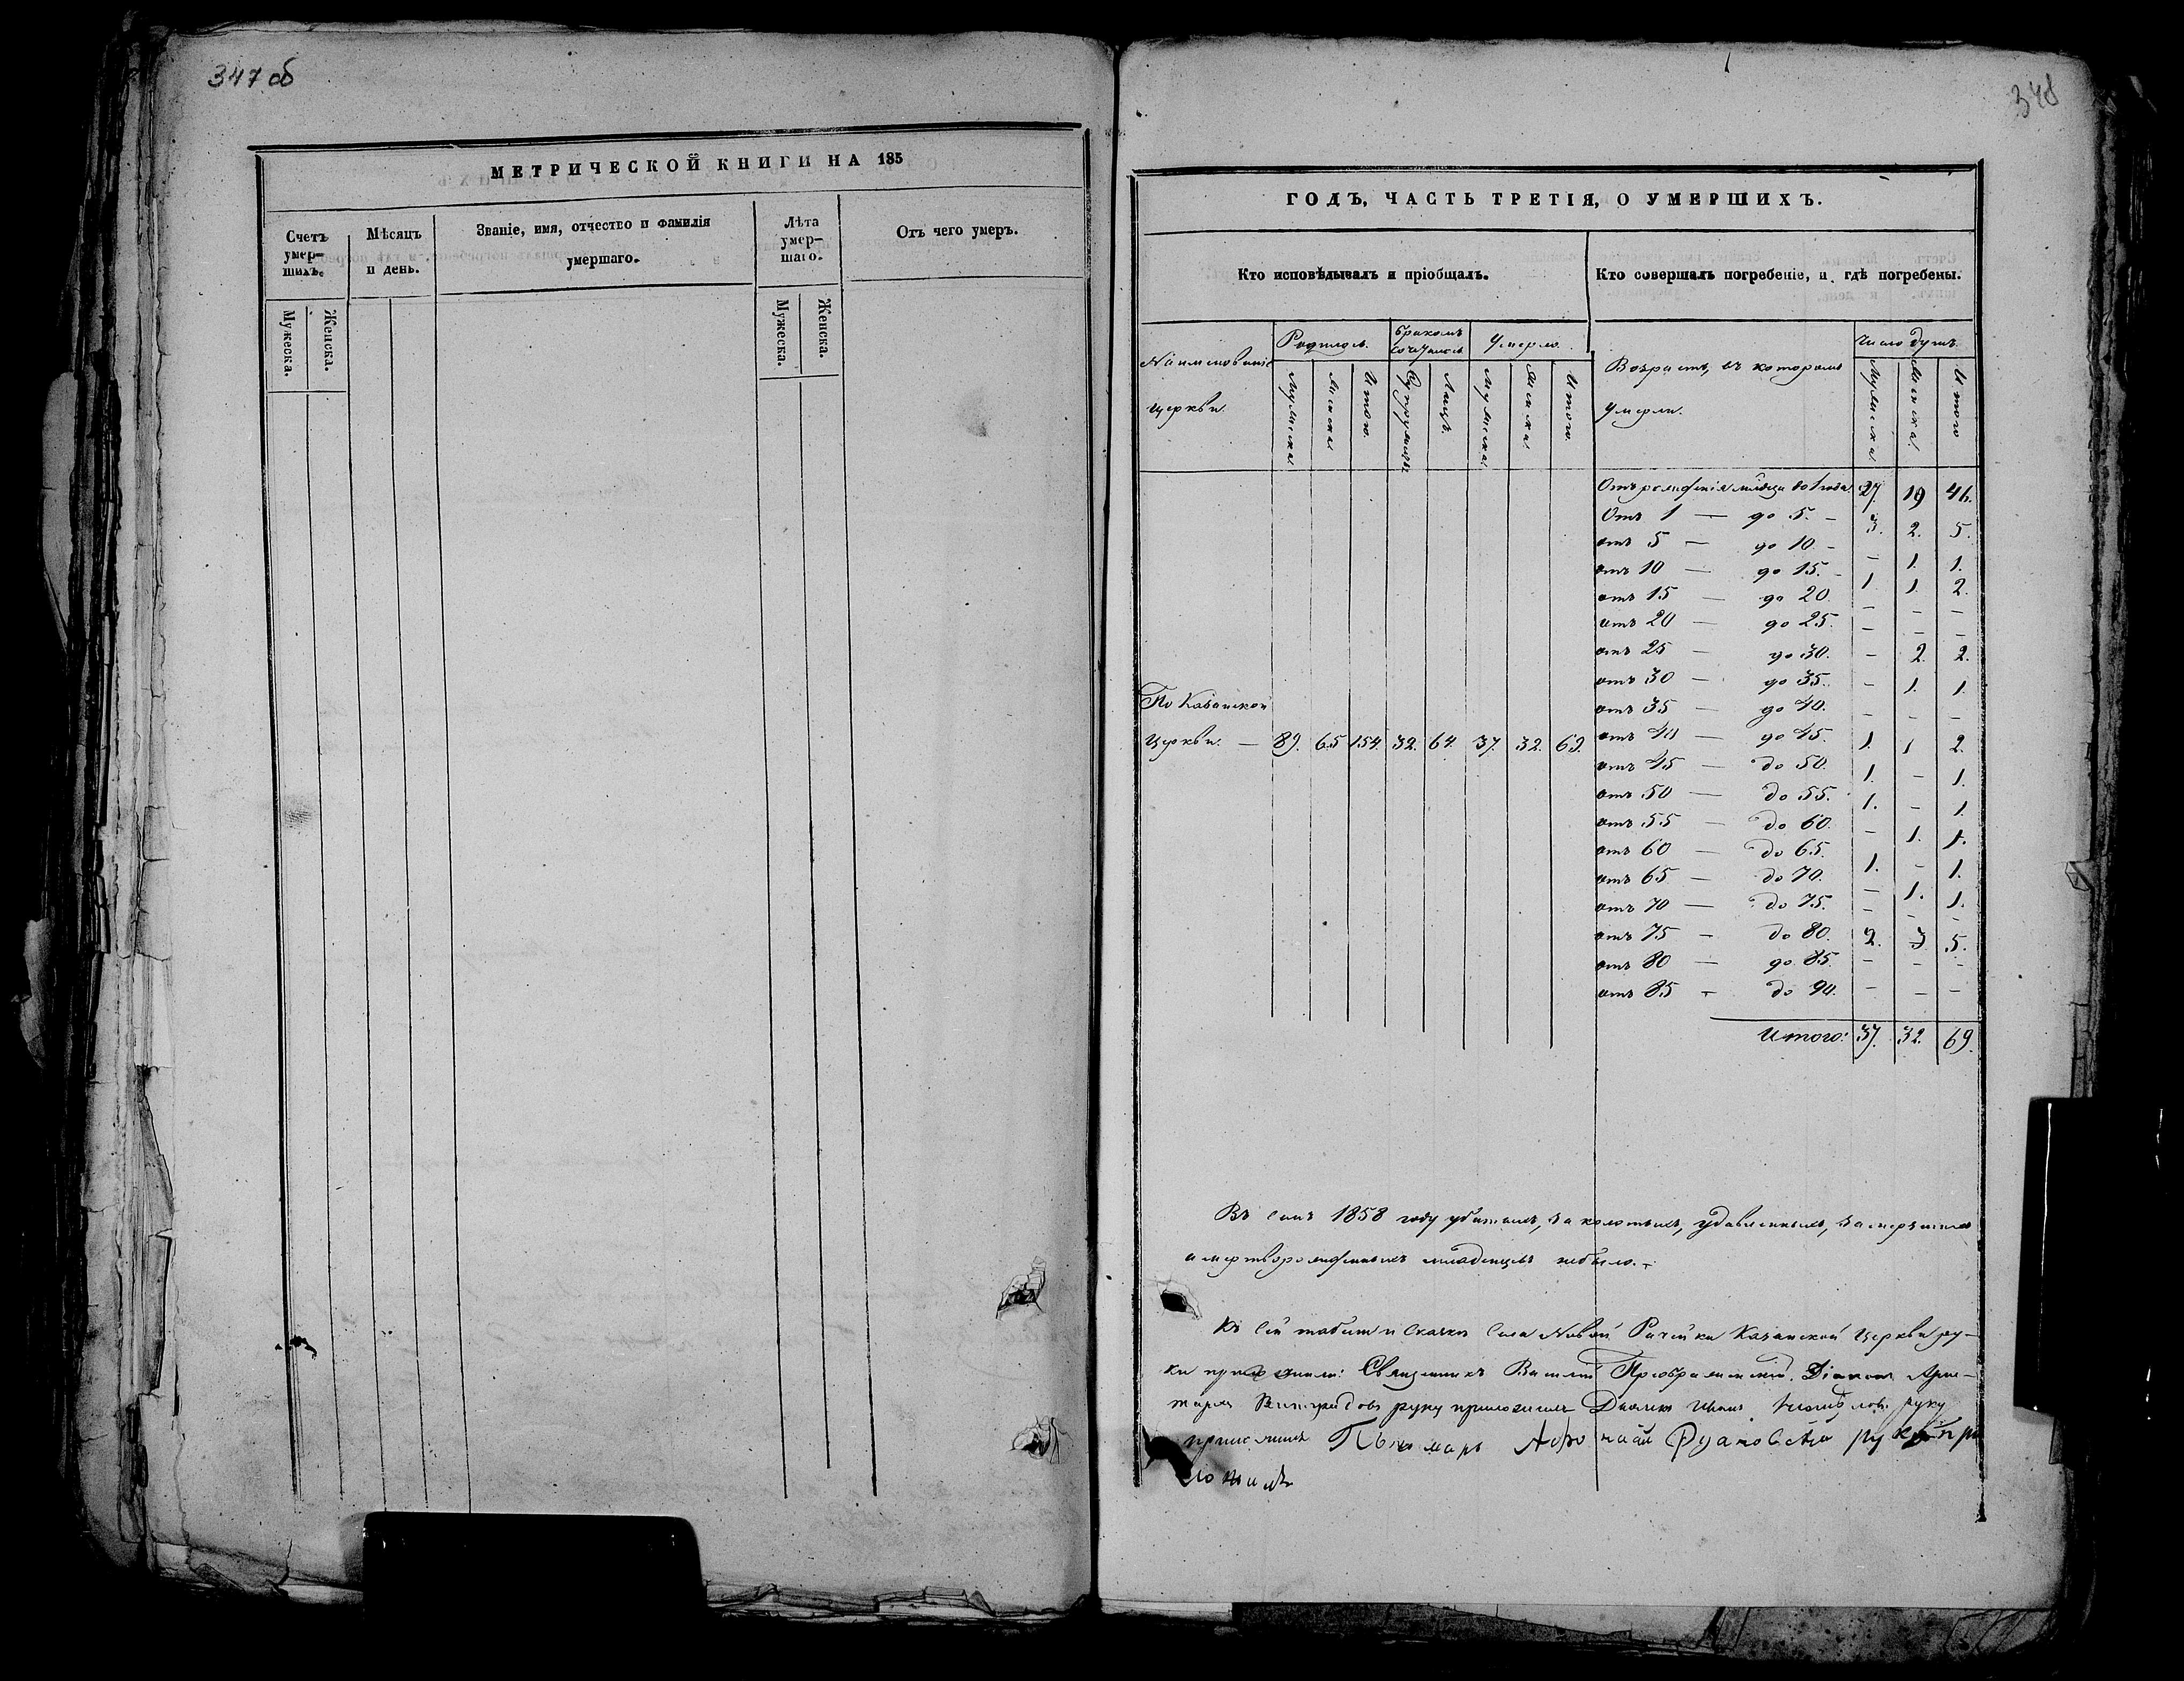 347 об
МЕТРИЧЕСКОЙ КНИГИ НА 185
Счетъ умер-шихъ.
Мѣсяцъ и день.
Званіе, имя, отчество и фамилія умершаго.
Лѣта умер-шаго.
Отъ чего умеръ.
Мужеска.
Женска.
Мужеска.
Женска.
348
ГОДЪ, ЧАСТЬ ТРЕТІЯ, О УМЕРШИХЪ.
Кто исповѣдывалъ и пріобщалъ.
Кто совершалъ погребеніе, и гдѣ погребены.
Наименованіе церкви.
Родилось.
Бракомъ сочталось
Умерло.
Возрастъ, въ которомъ умерли.
Число душъ.
Мужеска
Женска
Итого.
Супружествъ
Лицъ.
Мужеска.
Женска.
Итого.
Мужеска.
Женска.
Итого
Отъ рожденія младенца до 1 года 27. 19 46.
Отъ 1 — до 5. – 3. 2. 5.
отъ 5 — до 10 – – 1. 1.
отъ 10 — до 15. – 1. 1 2.
отъ 15 — до 20. – – –
отъ 20 — до 25. – – –
отъ 25 — до 30. – 2. 2.
отъ 30 — до 35. – 1. 1.
отъ 35 — до 40. – – –
отъ 40 — до 45. 1. 1 2.
отъ 45 — до 50. 1. – 1.
отъ 50 — до 55. 1. – 1.
отъ 55 — до 60. – 1. 1.
отъ 60 — до 65. 1. – 1.
отъ 65 — до 70. – 1. 1.
отъ 70 — до 75. – – –
отъ 75 – до 80. 2. 3 5.
отъ 80 — до 85. – – –
отъ 85 – до 90. – – –
Итого: 37. 32. 69.
По Казанской
Церкви. — 89. 65 154. 32. 64. 37. 32. 69.
Въ семъ 1858 году убитыхъ, заколотыхъ, удавленныхъ, замерзшихъ
и мертворожденныхъ младенцевъ небыло. –
Къ сей табели и сказкѣ села Новой Рачейки Казанской Церкви ру-
ки приложили: Священникъ Василій Преображенскій. Діаконъ Арис-
тархъ руку приложилъ Дьячекъ Иванъ руку
приложилъ Пономарь руку при
ложилъ